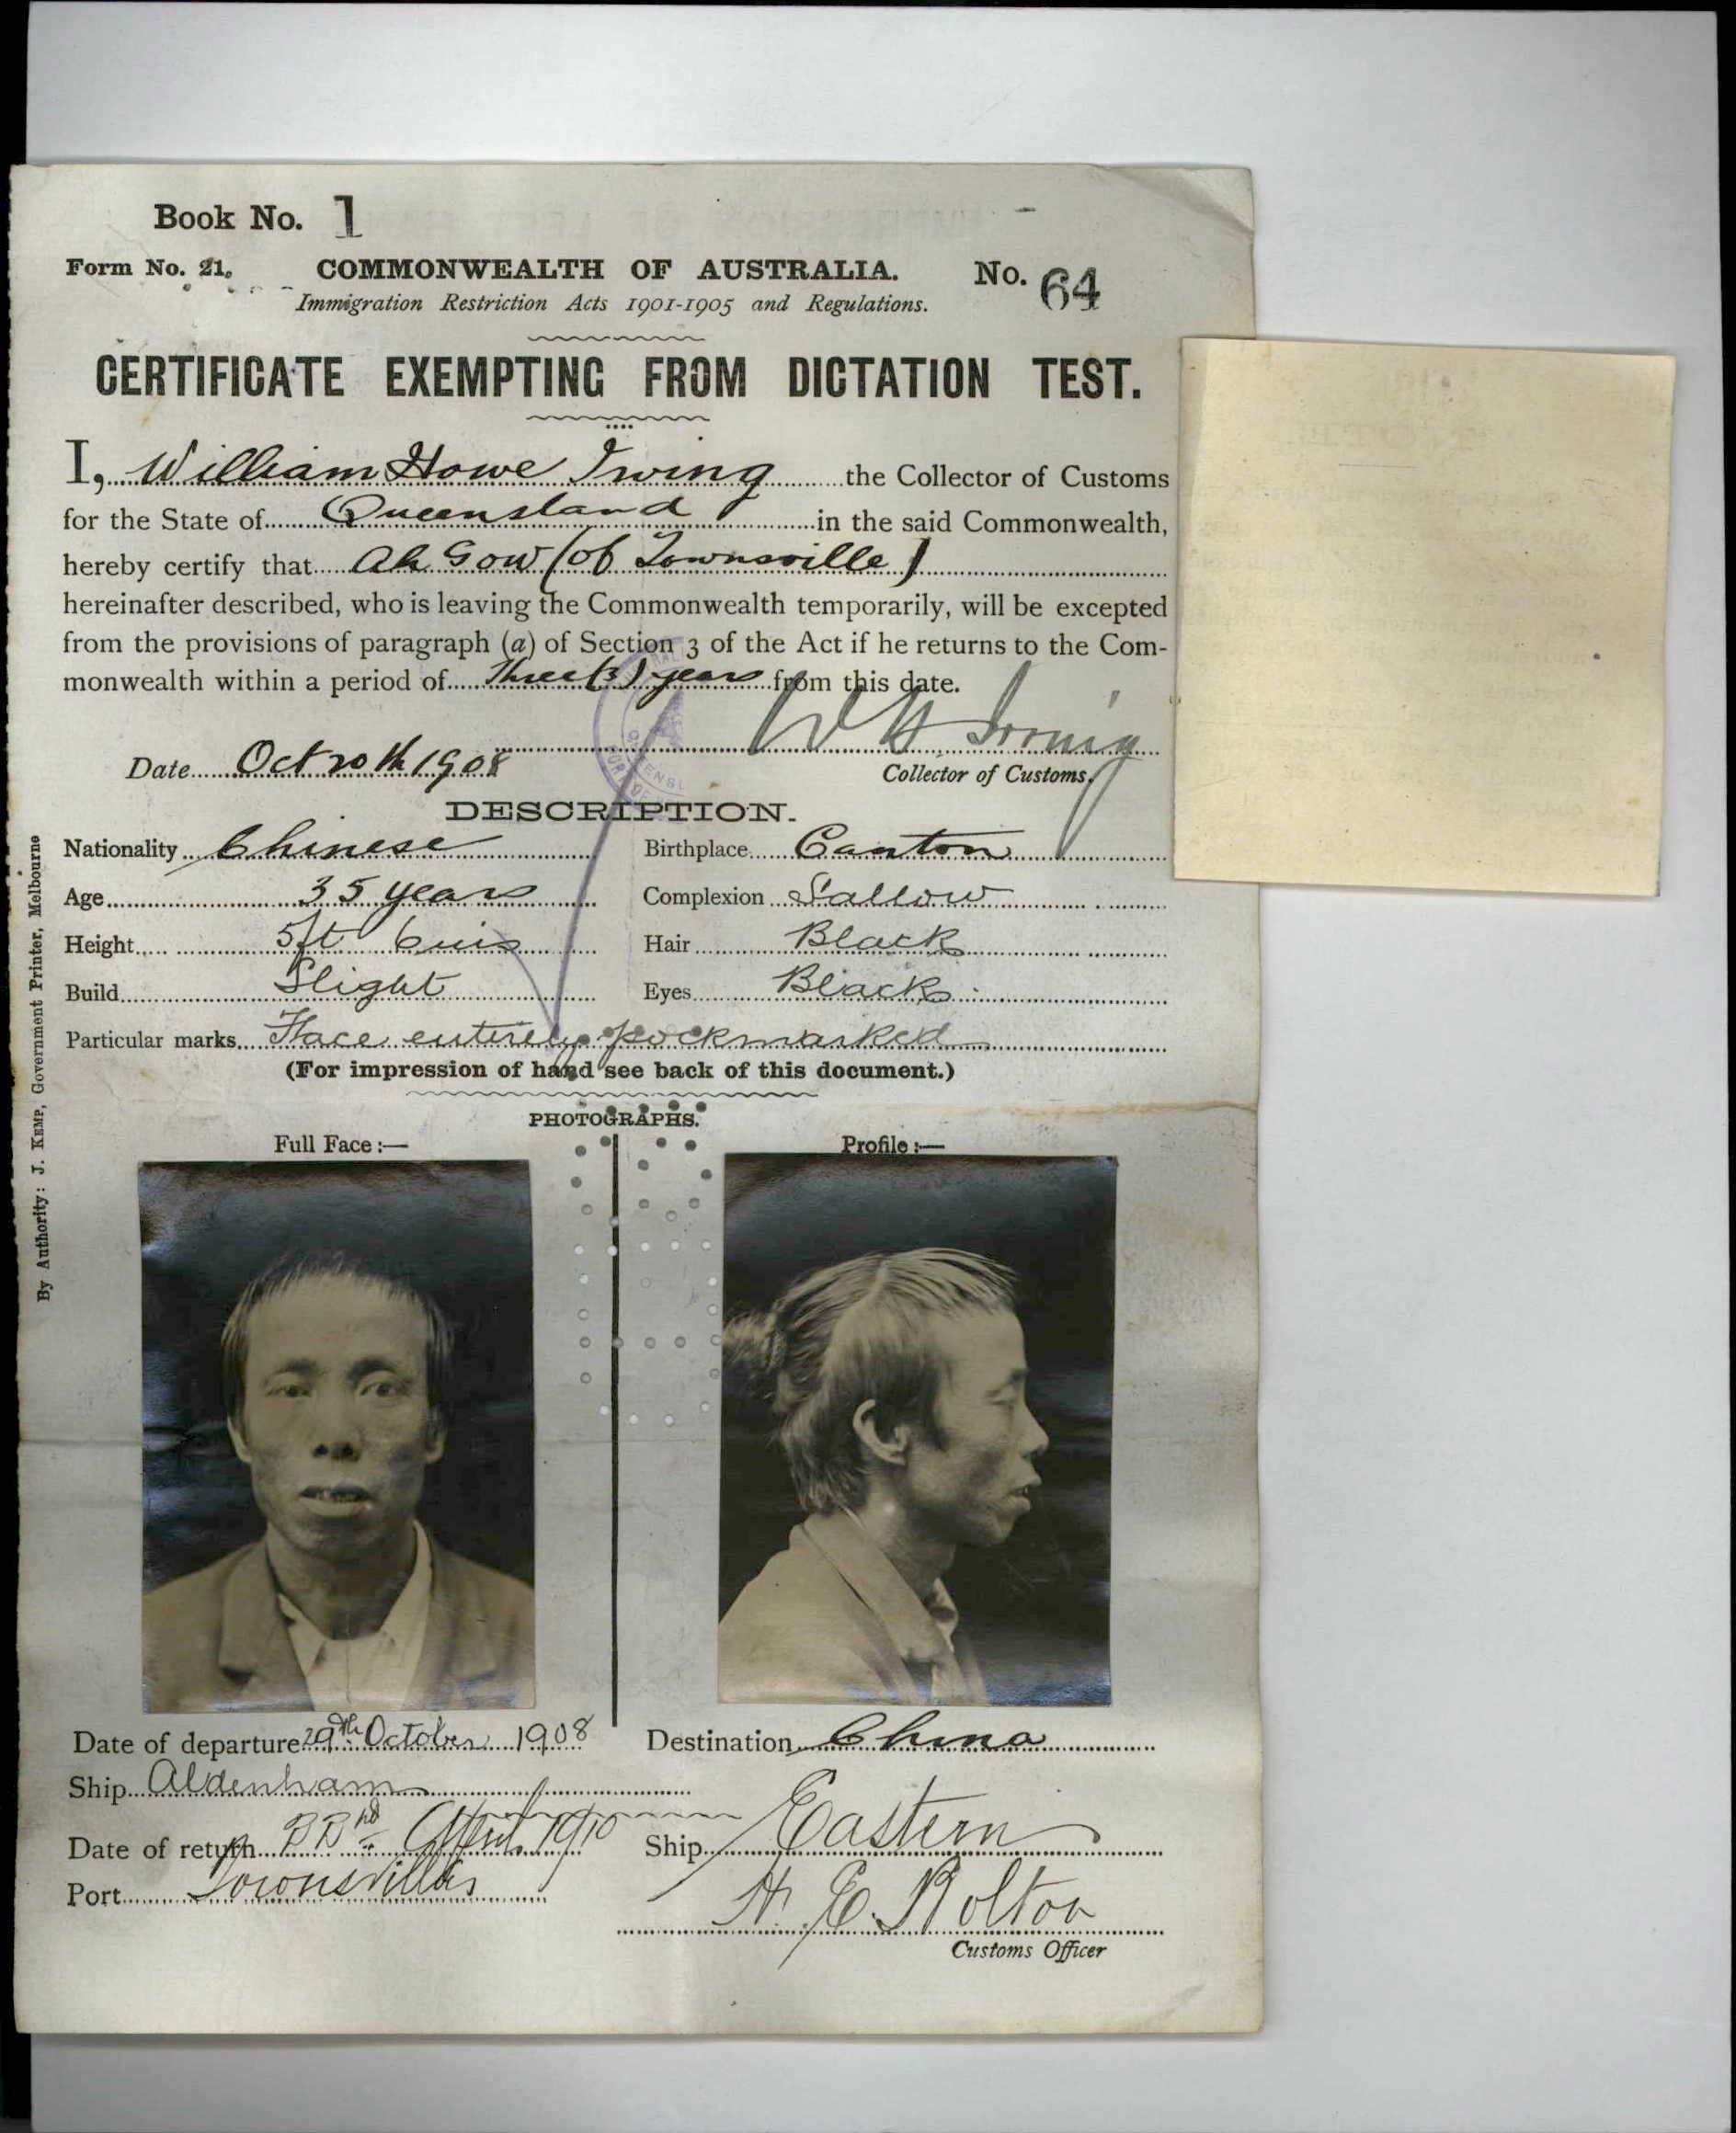 Book No. 1
Form No. 21. COMMONWEALTH OF AUSTRALIA. No. 64
Immigration Restriction Acts 1901-1905 and Regulations.
CERTIFICATE EXEMPTING FROM DICTATION TEST.
I, William Howe Irving the Collector of Customs
for the State of Queensland in the said Commonwealth,
hereby certify that Ah Gow (of Townsville)
hereinafter described, who is leaving the Commonwealth temporarily, will be excepted
from the provisions of paragraph (a) of Section 3 of the Act if he returns to the Com-
monwealth within a period of Three (3) years from this date.
W H Irving
Date Oct 20th 1908 Collector of Customs.
DESCRIPTION.
Nationality Chinese Birthplace Canton
Age 35 years Complexion Sallow
Height 5ft 6ins Hair Black
Build Slight Eyes Black
Particular marks Face entirely pockmarked
(For impression of hand see back of this document.)
PHOTOGRAPHS.
Full Face :— Profile :—
Date of departure 29th October 1908 Destination China
Ship Aldenham
Date of return 22nd April 1910 Ship Eastern
Port Townsville
H. E. Bolton
Customs Officer
By Authority: J. KEMP, Government Printer, Melbourne